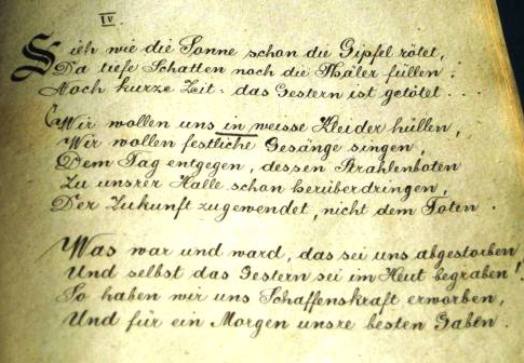 IV.
Sieh wie die Sonne schon die Gipfel rötet,
Da tiefe Schatten noch die Thäler füllen:
Noch kurze Zeit - das Gestern ist getötet ...
Wir wollen uns in weisse Kleider hüllen,
Wir wollen festliche Gesänge singen,
Dem Tag entgegen, dessen Strahlenboten
Zu unsrer Halle schon herüberdringen,
Der Zukunft zugewendet, nicht dem Toten.
Was war und ward, das sei uns abgestorben
Und selbst das Gestern sei im Heut begraben!
So haben wir uns Schaffenskraft erworben,
Und für ein Morgen unsre besten Gaben.